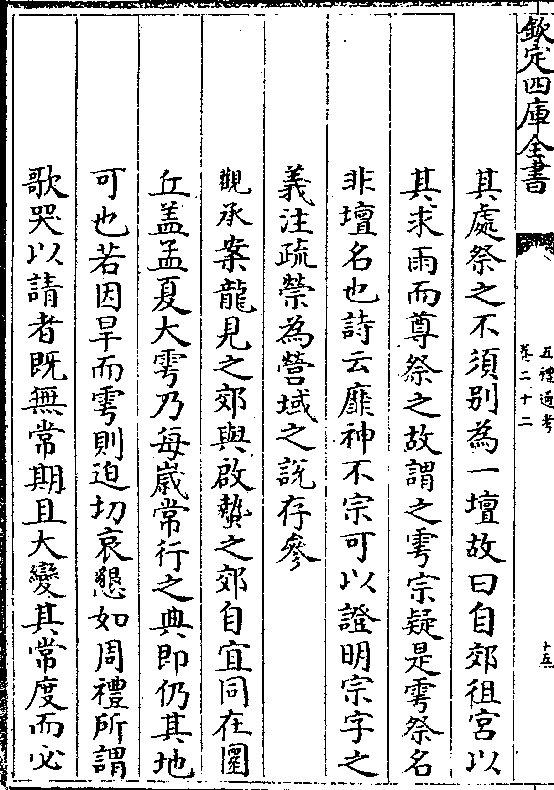 欽定四庫全書
五禮通考
卷二十二
十五
其處祭之不須别為一壇故曰自郊徂宮以
其求雨而尊祭之故謂之雩宗疑是雩祭名
非壇名也詩云靡神不宗可以證明宗字之
義注疏禜為營域之說存參
觀承案龍見之郊與啟蟄之郊自宜同在圜
丘盖孟夏大雩乃每歲常行之典即仍其地
可也若因旱而雩則迫切哀懇如周禮所謂
歌哭以請者既無常期且大變其常度而必